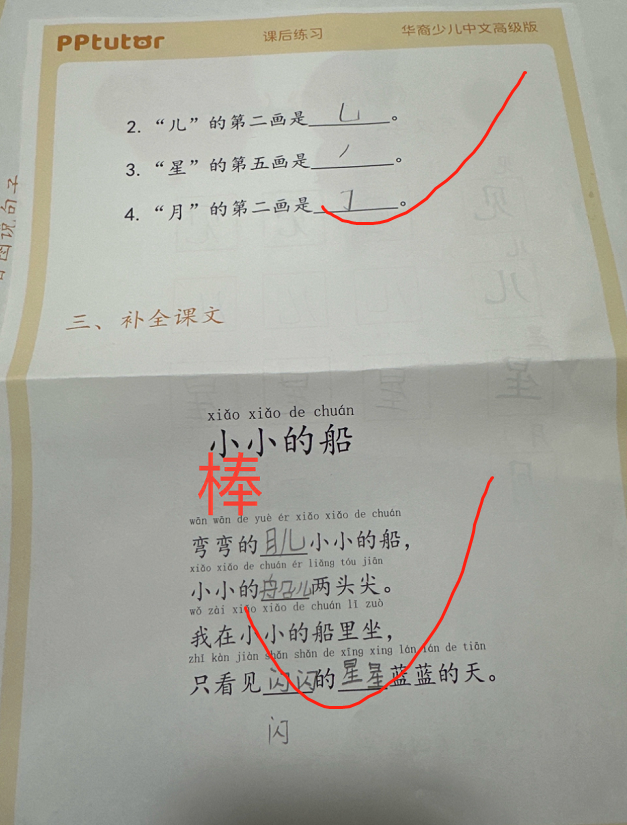 PPtutor 课后练习 华裔少儿中文高级版
2. “儿”的第二画是乚。
3. “星”的第五画是丿。
4. “月”的第二画是𠃌。
看图说句子
三、补全课文
xiǎo xiǎo de chuán
小小的船
棒
wān wān de yuè ér xiǎo xiǎo de chuán
弯弯的月儿小小的船，
xiǎo xiǎo de chuán ér liǎng tóu jiān
小小的船儿两头尖。
wǒ zài xiǎo xiǎo de chuán lǐ zuò
我在小小的船里坐，
zhǐ kàn jiàn shǎn shǎn de xīng xing lán lán de tiān
只看见闪闪的星星蓝蓝的天。
闪